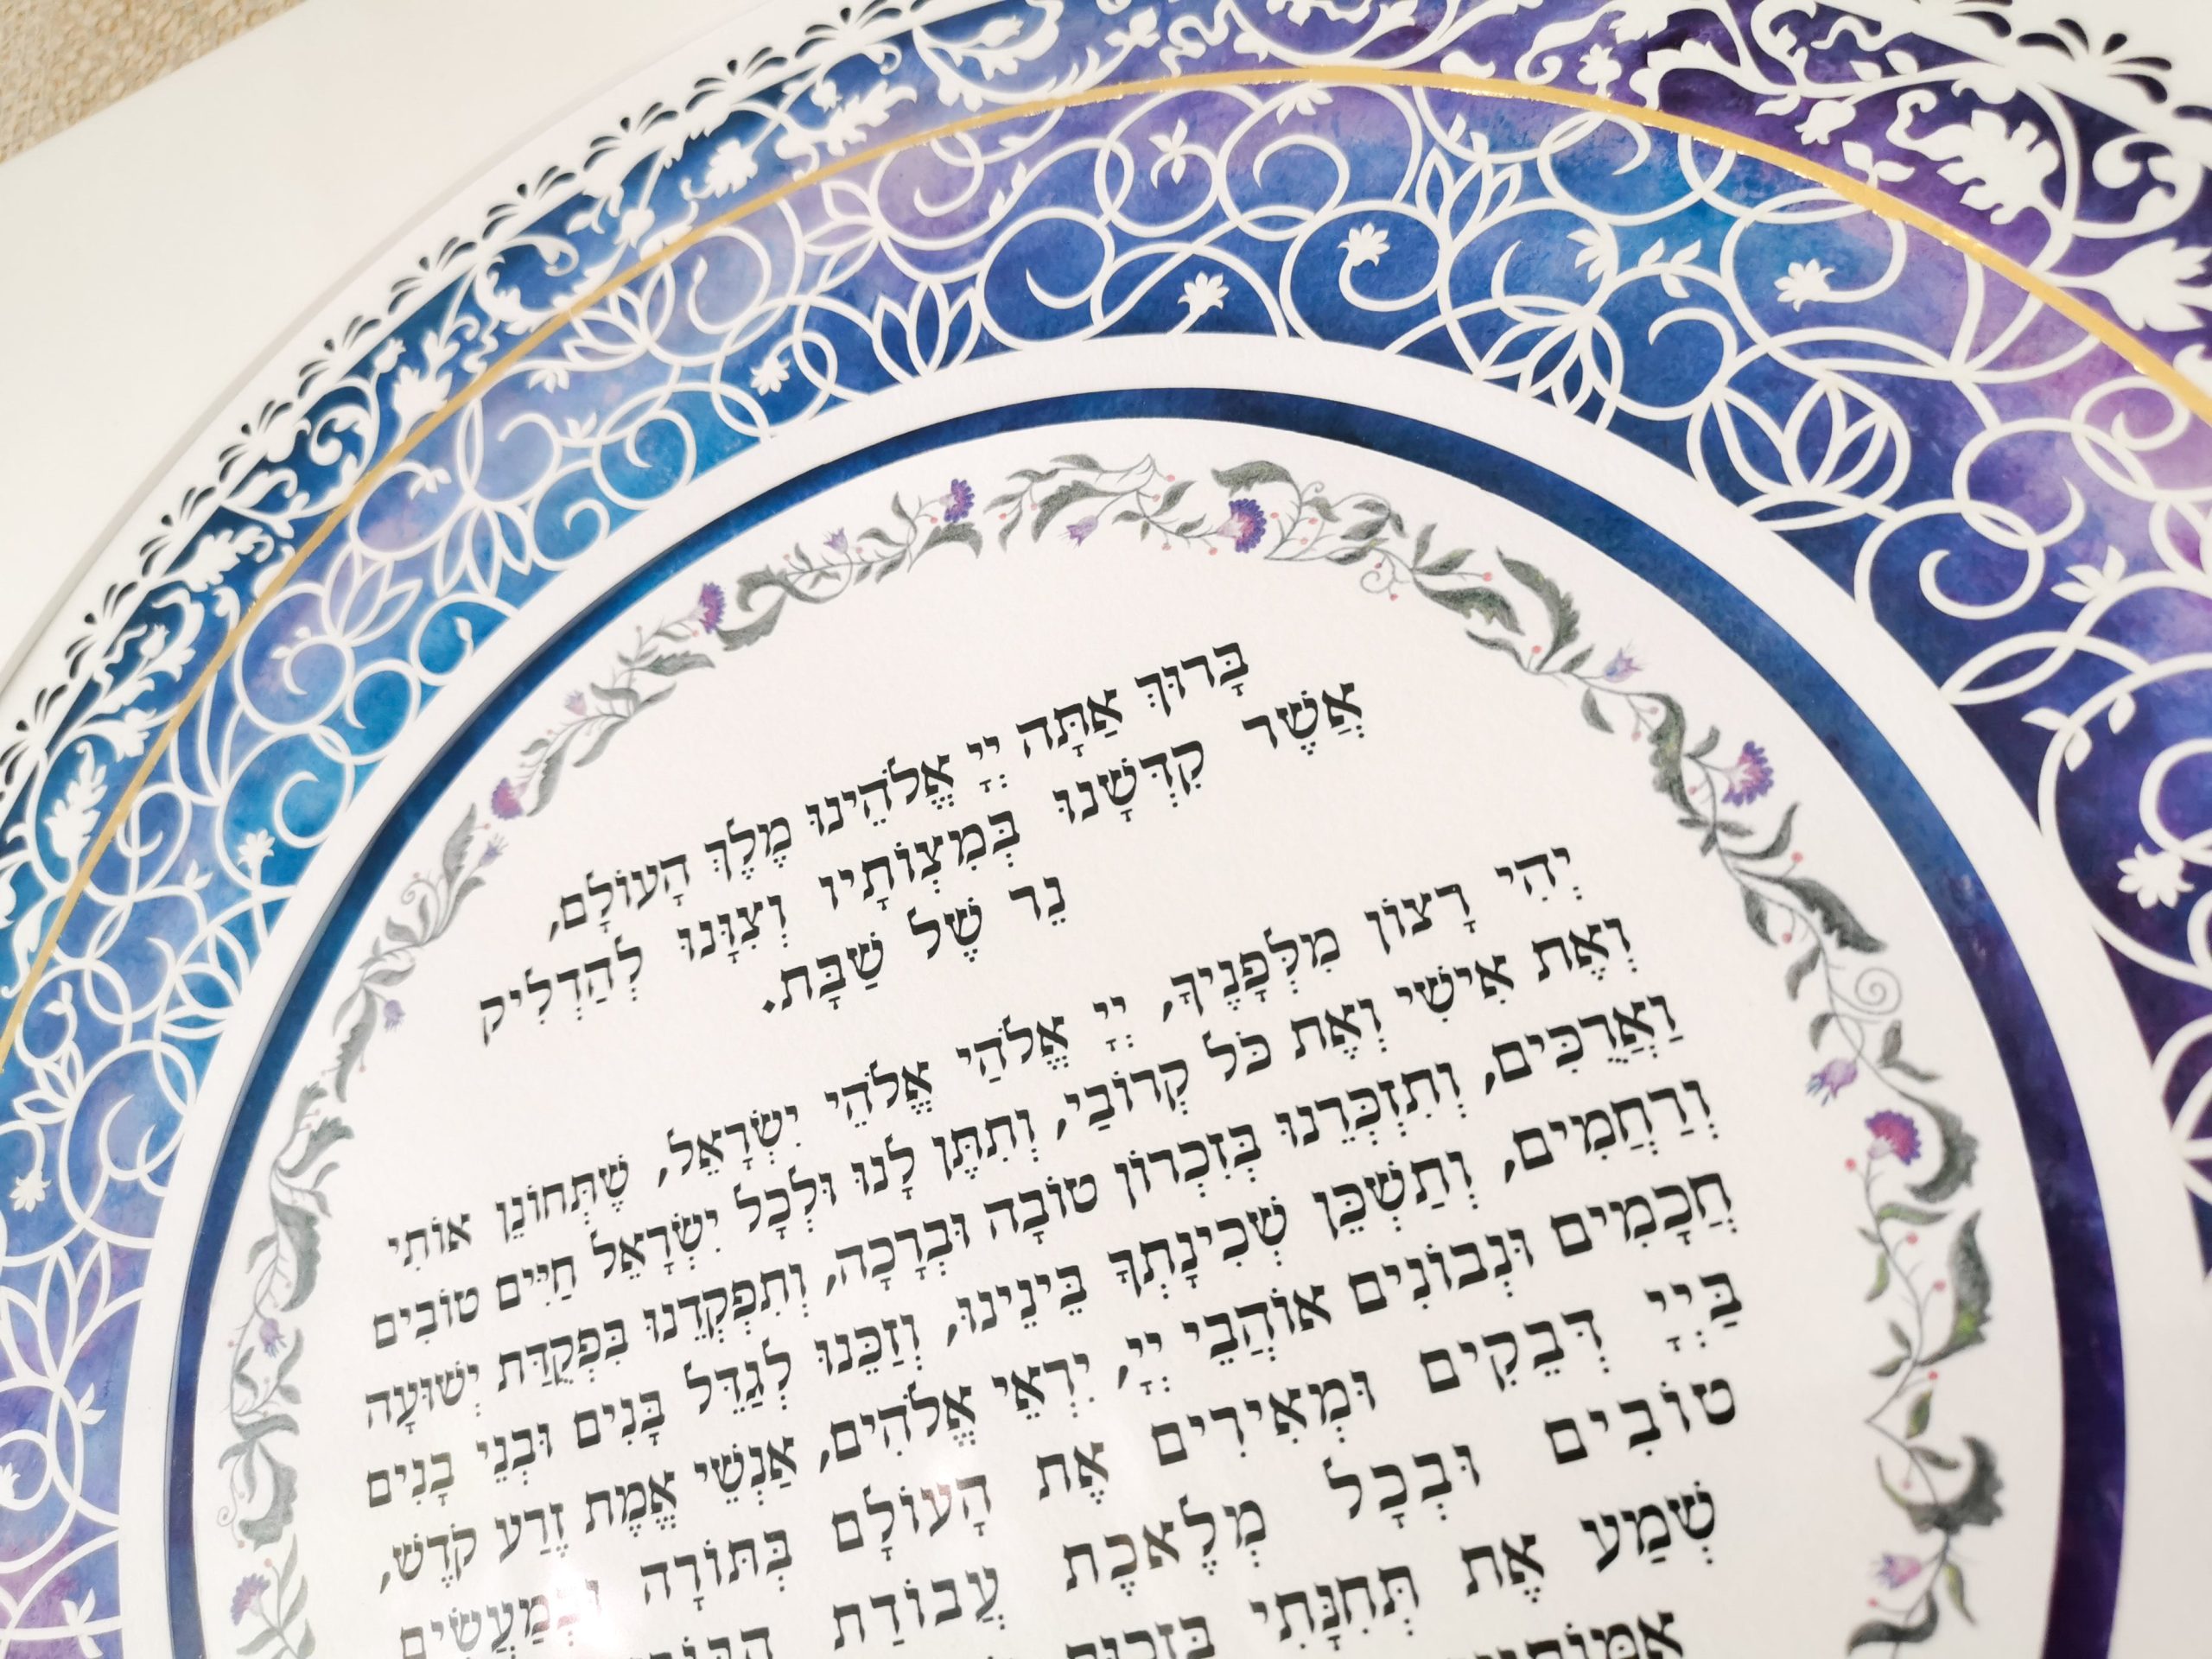 בָּרוּךְ אַתָּה יְיָ אֱלֹהֵינוּ מֶלֶךְ הָעוֹלָם,
אֲשֶׁר קִדְּשָׁנוּ בְּמִצְוֹתָיו וְצִוָּנוּ לְהַדְלִיק
נֵר שֶׁל שַׁבָּת.
יְהִי רָצוֹן מִלְּפָנֶיךָ, יְיָ אֱלֹהַי אֱלֹהֵי יִשְׂרָאֵל, שֶׁתְּחוֹנֵן אוֹתִי
וְאֶת אִישִׁי וְאֶת כֹּל קְרוֹבַי, וְתִתֶּן לָנוּ וּלְכָל יִשְׂרָאֵל חַיִּים טוֹבִים
וַאֲרֻכִּים, וְתִזְכְּרֵנוּ בְּזִכְרוֹן טוֹבָה וּבְרָכָה, וְתִפְקְדֵנוּ בִּפְקֻדַּת יְשׁוּעָה
וְרַחֲמִים, וְתַשְׁכֵּן שְׁכִינָתְךָ בֵּינֵינוּ, וְזַכֵּנוּ לְגַדֵּל בָּנִים וּבְנֵי בָנִים
חֲכָמִים וּנְבוֹנִים אוֹהֲבֵי יְיָ, יִרְאֵי אֱלֹהִים, אַנְשֵׁי אֱמֶת זֶרַע קֹדֶשׁ,
בַּיְיָ דְּבֵקִים וּמְאִירִים אֶת הָעוֹלָם בְּתּוֹרָה וּבְמַעֲשִׂים
טוֹבִים וּבְכָל מְלֶאכֶת עֲבוֹדַת
שְׁמַע אֶת תְּחִנָּתִי בִּזְכוּת